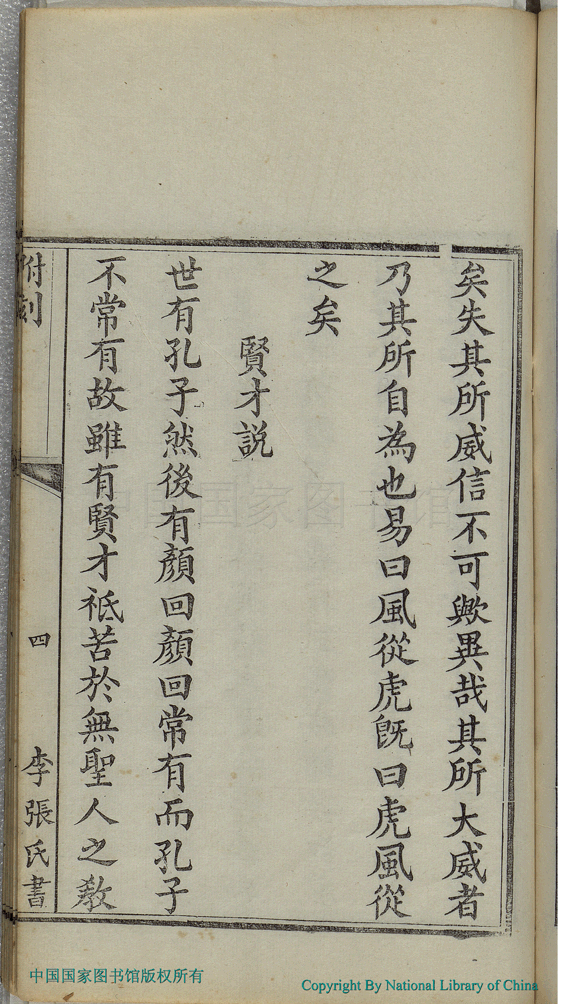 矣失其所威信不可歟異哉其所大威者
乃其所自為也易曰風從虎旣曰虎風從
之矣
賢才説
世有孔子然後有顏回顏回常有而孔子
不常有故雖有賢才祗苦於無聖人之敎
附刻
四
李張氏書
中国国家图书馆
中国国家图书馆版权所有
Copyright By National Library of China